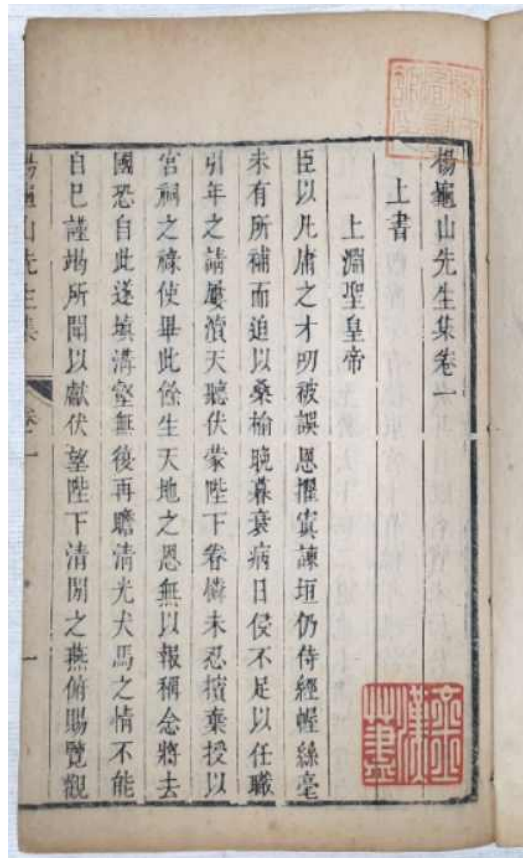 楊龜山先生集卷一
上書
上淵聖皇帝
臣以凡庸之才叨被誤恩擢寘諫垣仍侍經幄絲毫
未有所補而迫以桑榆晚暮衰病日侵不足以任職
引年之請屢瀆天聽伏蒙陛下眷憐未忍擯棄授以
宮祠之祿使畢此餘生天地之恩無以報稱念將去
國恐自此遂填溝壑無復再瞻清光犬馬之情不能
自已謹竭所聞以獻伏望陛下清閒之燕俯賜覽觀
楊龜山先生集
卷一
一